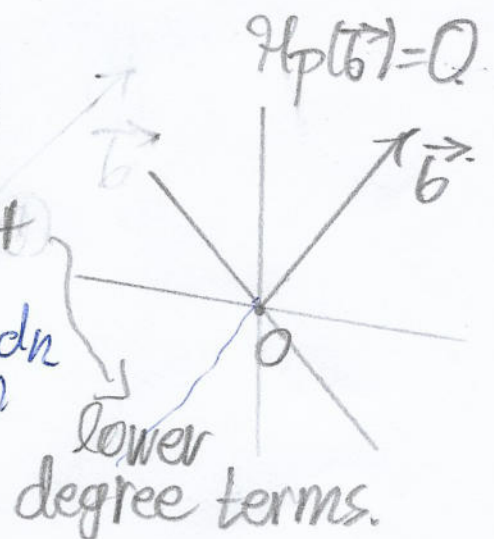 Hp(b⃗)=0
b⃗ b⃗
+
dn
O
lower
degree terms.